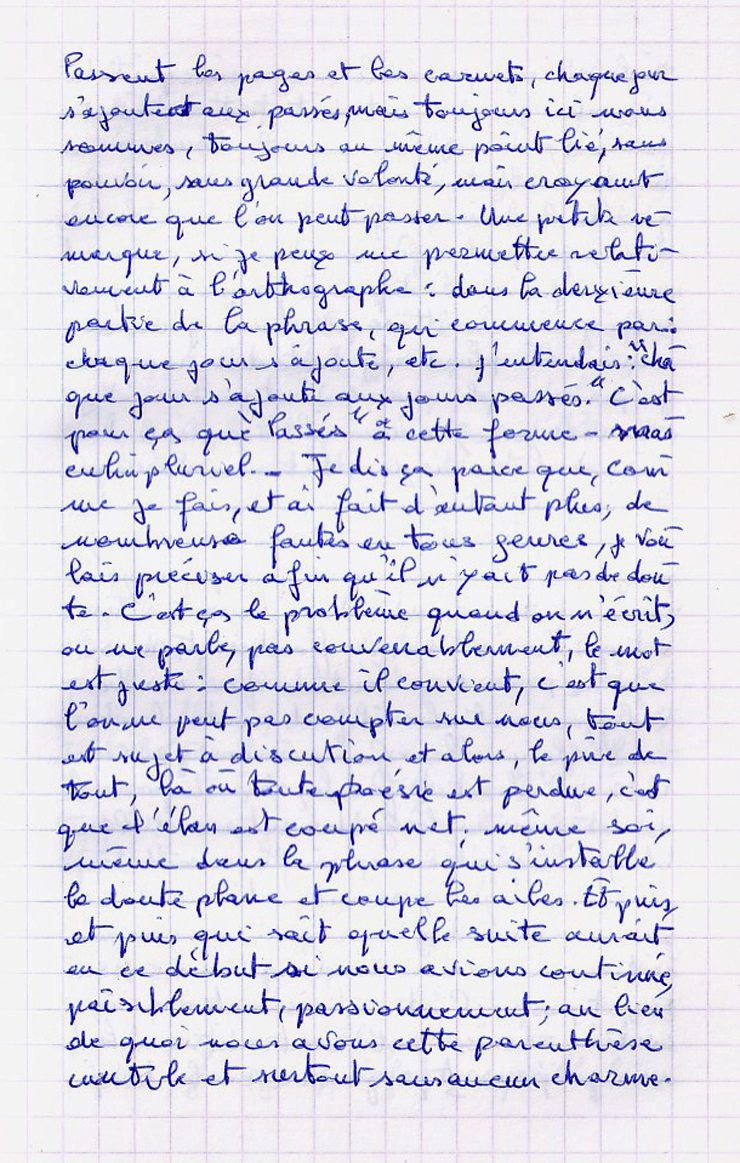 Passent les pages et les carnets, chaque jour
s'ajoutent aux passés, mais toujours ici nous
sommes, toujours au même point lié, sans
pouvoir, sans grande volonté, mais croyant
encore que l'on peut passer. Une petite re-
marque, si je peux me permettre relati-
vement à l'orthographe : dans la deuxième
partie de la phrase, qui commence par :
chaque jour s'ajoute, etc. j'entendais : "cha
que jour s'ajoute aux jours passés." C'est
pour ça que "Passés" a cette forme - mas
culin pluriel. - Je dis ça parce que, com
me je fais, et ai fait d'autant plus, de
nombreuses fautes en tous genres, je vou
lais préciser afin qu'il n'y ait pas de dou
te. C'est ça le problème quand on n'écrit,
ou ne parle, pas convenablement, le mot
est juste : comme il convient, c'est que
l'on ne peut pas compter sur nous, tout
est sujet à discution et alors, le pire de
tout, là où toute poésie est perdue, c'est
que l'élan est coupé net. même soi,
même dans la phrase qui s'installe
le doute plane et coupe les ailes. Et puis,
et puis qui sait quelle suite aurait
eu ce début si nous avions continué,
paisiblement, passionnément ; au lieu
de quoi nous avons cette parenthèse
inutile et surtout sans aucun charme.